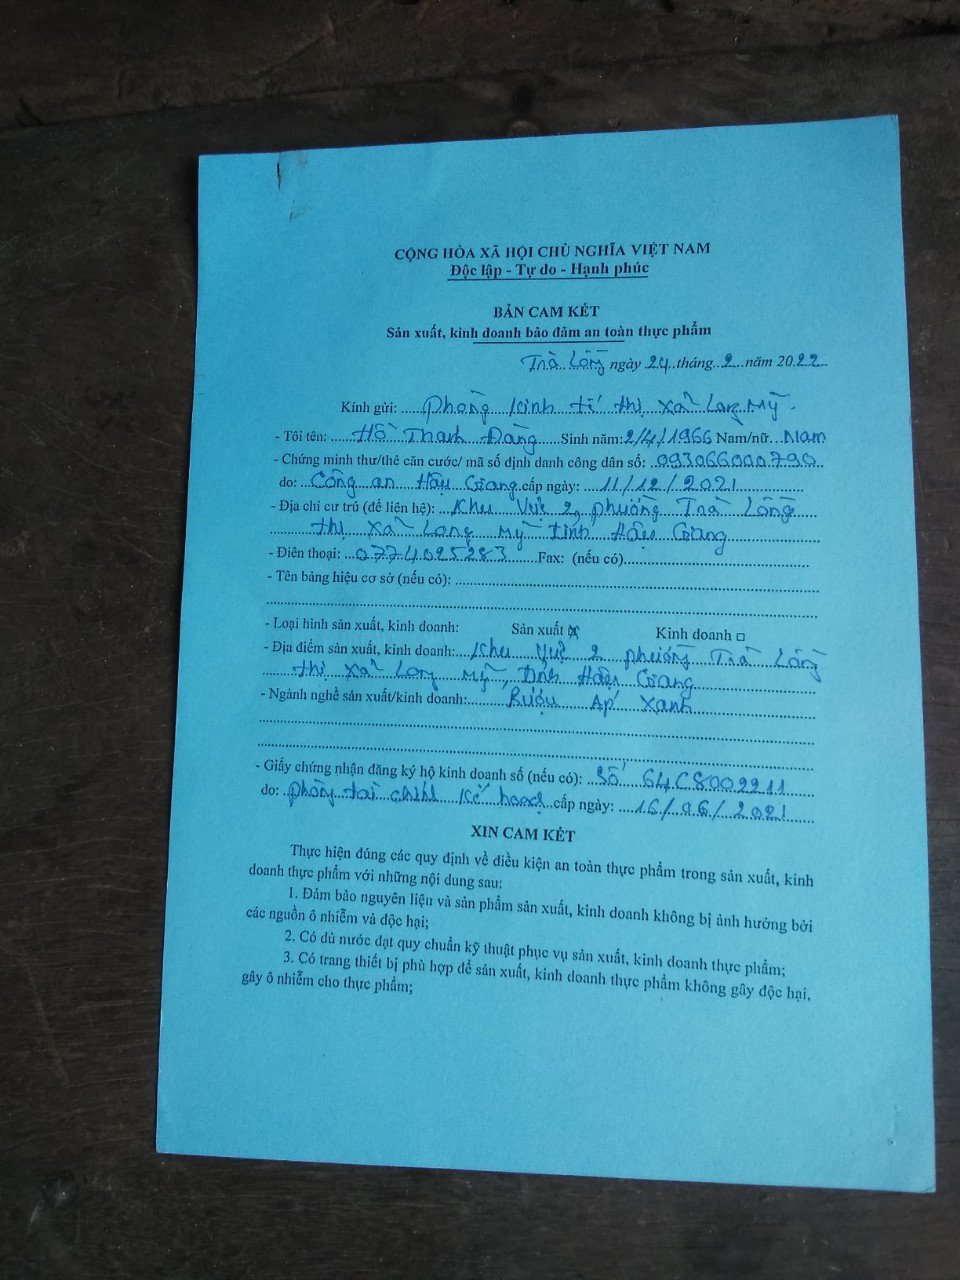 CỘNG HÒA XÃ HỘI CHỦ NGHĨA VIỆT NAM
Độc lập - Tự do - Hạnh phúc
BẢN CAM KẾT
Sản xuất, kinh doanh bảo đảm an toàn thực phẩm
Trà Lồng ngày 24 tháng 2 năm 2022
Kính gửi: Phòng Kinh tế thị xã Long Mỹ.
- Tôi tên: Hồ Thanh Đàng Sinh năm: 2/4/1966 Nam/nữ Nam
- Chứng minh thư/thẻ căn cước/ mã số định danh công dân số: 093066000790
do: Công an Hậu Giang cấp ngày: 11/12/2021
- Địa chỉ cư trú (để liên hệ): Khu Vực 2, phường Trà Lồng
thị xã Long Mỹ tỉnh Hậu Giang
- Điên thoại: 0774025283 Fax: (nếu có)
- Tên bảng hiệu cơ sở (nếu có):
- Loại hình sản xuất, kinh doanh: Sản xuất ☒ Kinh doanh □
- Địa điểm sản xuất, kinh doanh: Khu Vực 2 phường Trà Lồng
thị xã Long Mỹ, tỉnh Hậu Giang
- Ngành nghề sản xuất/kinh doanh: Rượu Áp Xanh
- Giấy chứng nhận đăng ký hộ kinh doanh số (nếu có): Số 64C8002211
do: phòng tài chính Kế hoạch cấp ngày: 16/06/2021
XIN CAM KẾT
Thực hiện đúng các quy định về điều kiện an toàn thực phẩm trong sản xuất, kinh
doanh thực phẩm với những nội dung sau:
1. Đảm bảo nguyên liệu và sản phẩm sản xuất, kinh doanh không bị ảnh hưởng bởi
các nguồn ô nhiễm và độc hại;
2. Có đủ nước đạt quy chuẩn kỹ thuật phục vụ sản xuất, kinh doanh thực phẩm;
3. Có trang thiết bị phù hợp để sản xuất, kinh doanh thực phẩm không gây độc hại,
gây ô nhiễm cho thực phẩm;